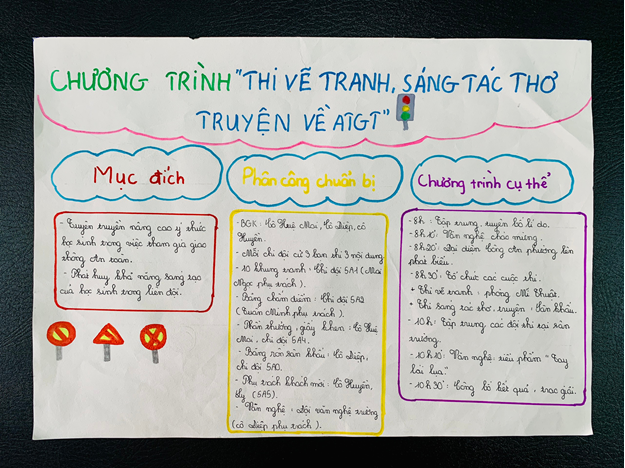 CHƯƠNG TRÌNH "THI VẼ TRANH, SÁNG TÁC THƠ
TRUYỆN VỀ ATGT"
Mục đích
- Tuyên truyền nâng cao ý thức
học sinh trong việc tham gia giao
thông An toàn.
- Phát huy khả năng sáng tạo
của học sinh trong liên đội.
Phân công chuẩn bị
- BGK: Cô Huê Mai, Cô Diệp, cô
Huyền.
- Mỗi chi đội cử 3 bạn thi 3 nội dung.
- 10 khung tranh: Chi đội 5A1 (Mai
Ngọc phụ trách).
- Bảng chấm điểm: Chi đội 5A2
(Tuấn Minh phụ trách).
- Phần thưởng, giấy khen: Cô Huê
Mai, chi đội 5A4.
- Băng rôn sân khấu: Cô Diệp,
chi đội 5A0.
- Phụ trách khách mời: Cô Huyền,
Vy (5A5).
- Văn nghệ: Đội văn nghệ trường
(cô Diệp phụ trách).
Chương trình cụ thể
- 8h: Tập trung, tuyên bố lí do.
- 8h10': Văn nghệ chào mừng.
- 8h20': Đại diện Công An phường lên
phát biểu.
- 8h30': Tổ chức các cuộc thi.
+ Thi vẽ tranh: phòng Mĩ Thuật.
+ Thi sáng tác thơ, truyện: Sân khấu.
- 10h: Tập trung các đội thi tại sân
trường.
- 10h10': Văn nghệ: tiểu phẩm "Tay
lái lụa"
- 10h30': Công bố kết quả, trao giải.